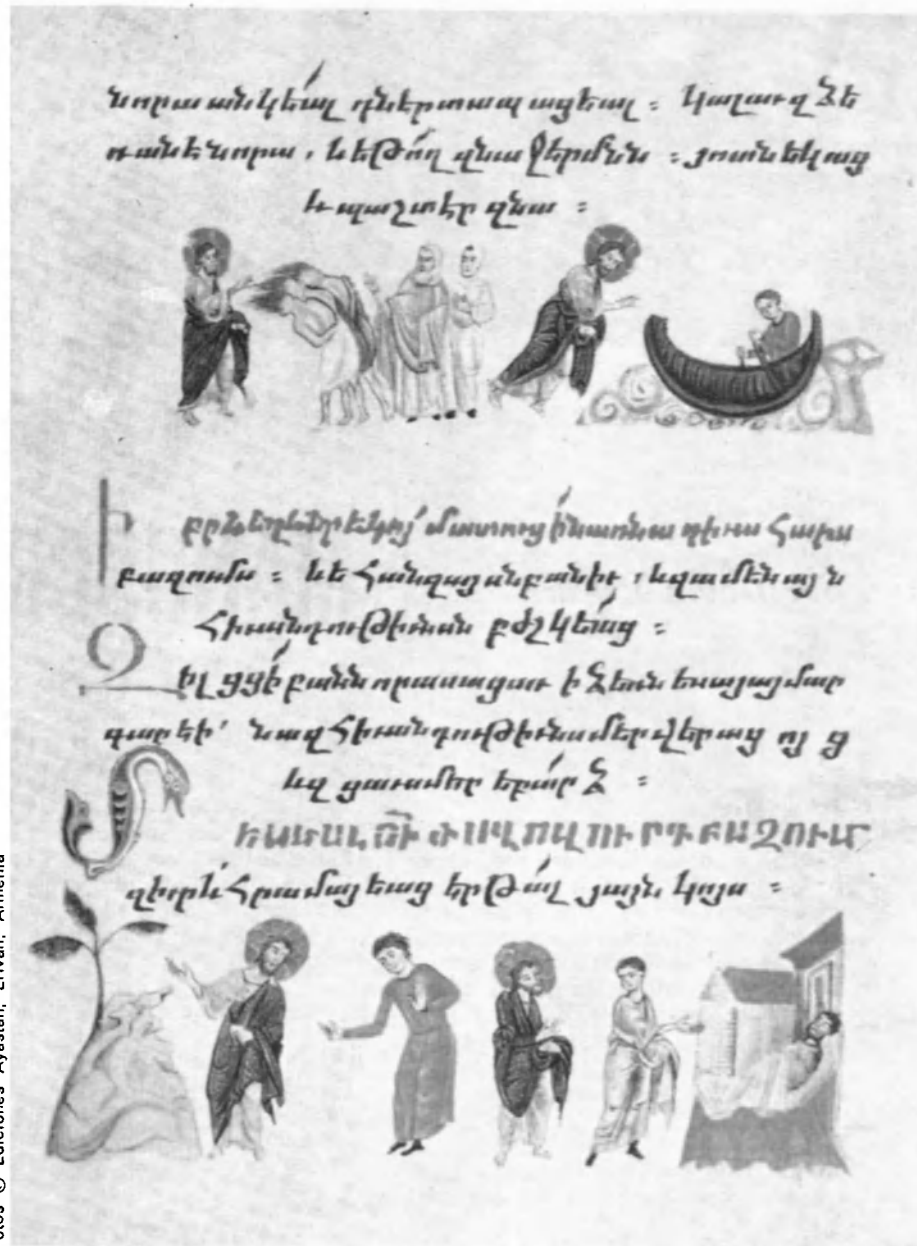 նորա անկեալ դնէր տապացեալ ։ կալաւ զձե
ռանէ նորա , և եթող զնա ջերմնն ։ յոտն եկաց
և պաշտէր զնա ։
Ի
բրև երեկոյ մատուցին առնա դիւահարս
բազումս ։ և եհան զայսն բանիւ , և զամենայն
հիւանդութիւնսն բժշկեաց ։
Զի լցցի բանն որ ասացաւ ի ձեռն եսայայ մար
գարեի՝ նա զհիւանդութիւնս մեր վերացոյց
և զցաւս մեր եբարձ ։
ԵՏԵՍԵԱԼ ՅԻ ԺՈՂՈՎՈՒՐԴ ԲԱԶՈՒՄ
զիւրև հրամայեաց երթալ յայն կոյս ։
otos © Ediciones Ayastan, Erivan, Armenia